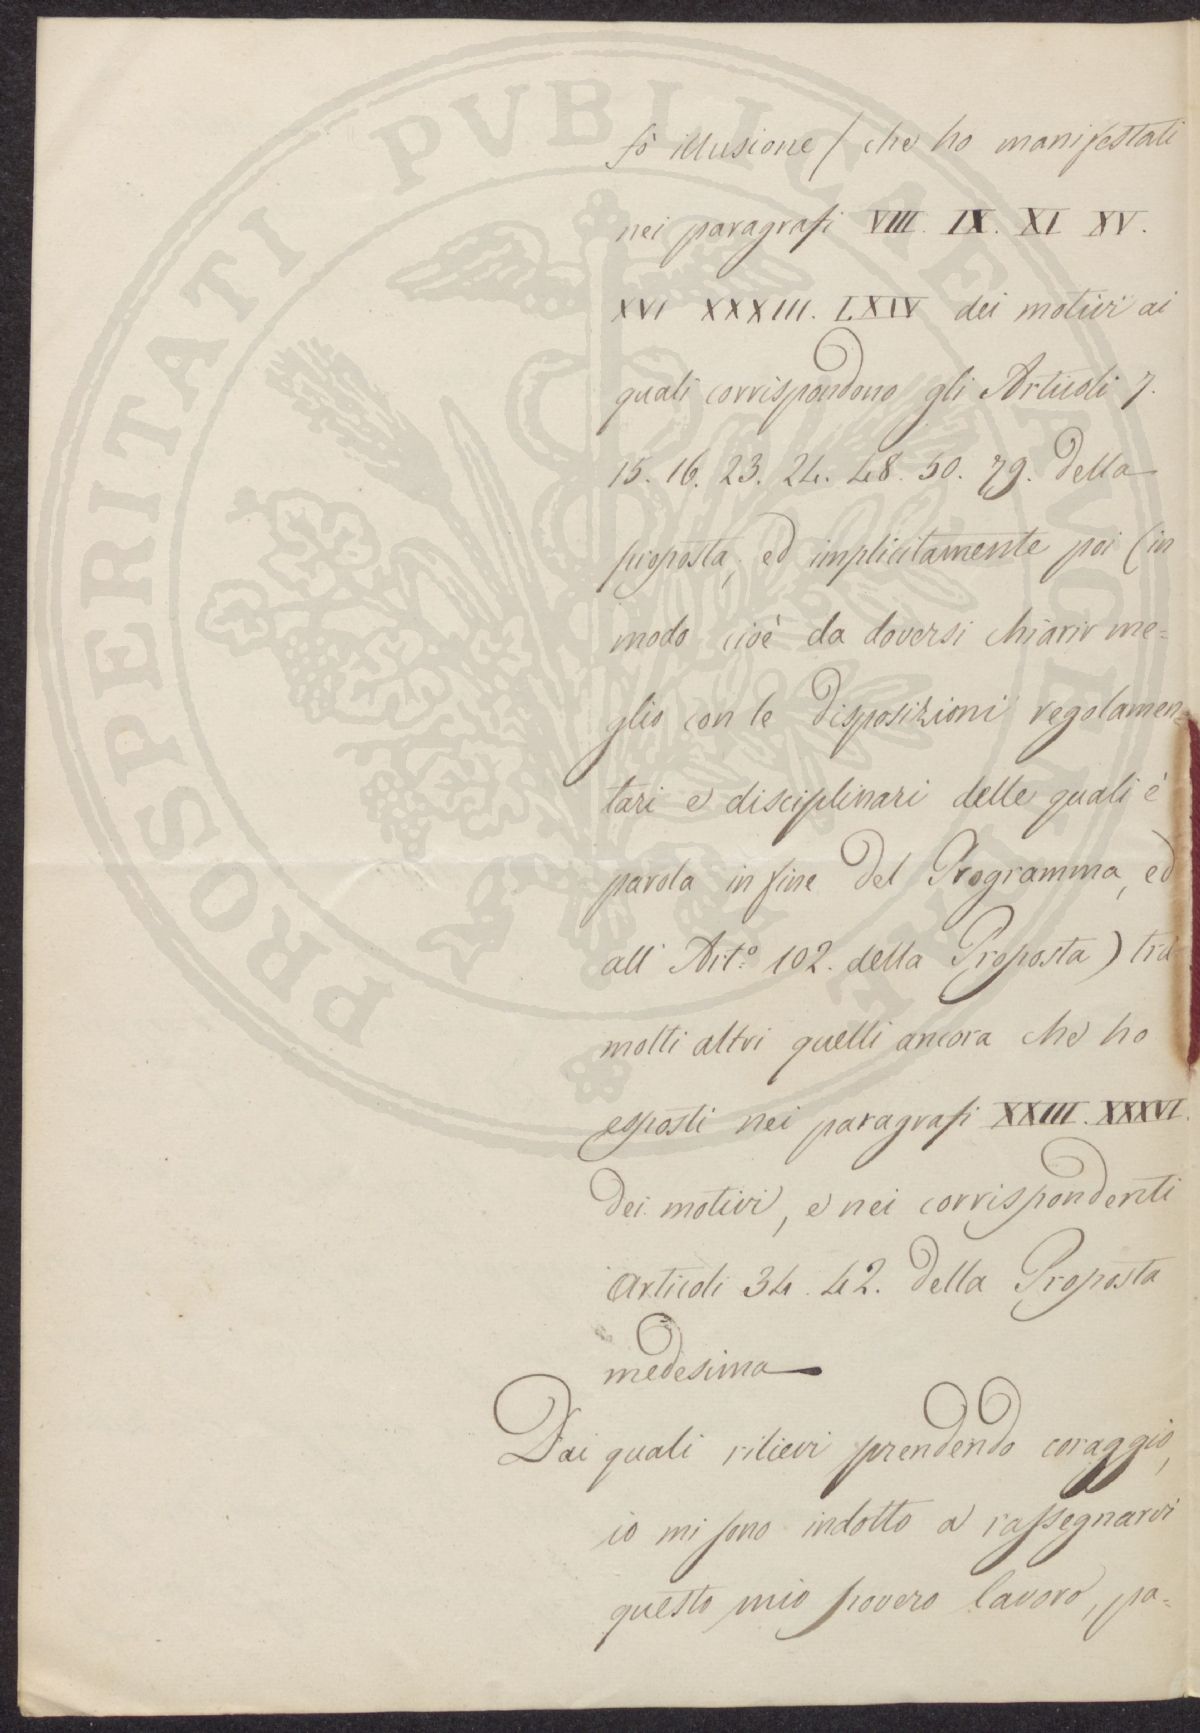 PROSPERITATI PVBLICAE AVGENDAE
fò illusione / che ho manifestati
nei paragrafi VIII. IX. XI XV.
XVI XXXIII. LXIV dei motivi ai
quali corrispondono gli Articoli 7.
15. 16. 23. 24. 48. 50. 79. della
proposta, ed implicitamente poi (in
modo cioè da doversi chiarir me=
glio con le disposizioni regolamen=
tari e disciplinari delle quali è
parola in fine del Programma, ed
all' Art.º 102. della Proposta) tra
molti altri quelli ancora che ho
esposti nei paragrafi XXIII. XXXVI.
dei motivi, e nei corrispondenti
Articoli 34. 42. della Proposta
medesima
Dai quali rilievi prendendo coraggio,
io mi sono indotto a rassegnarvi
questo mio povero lavoro, pa=